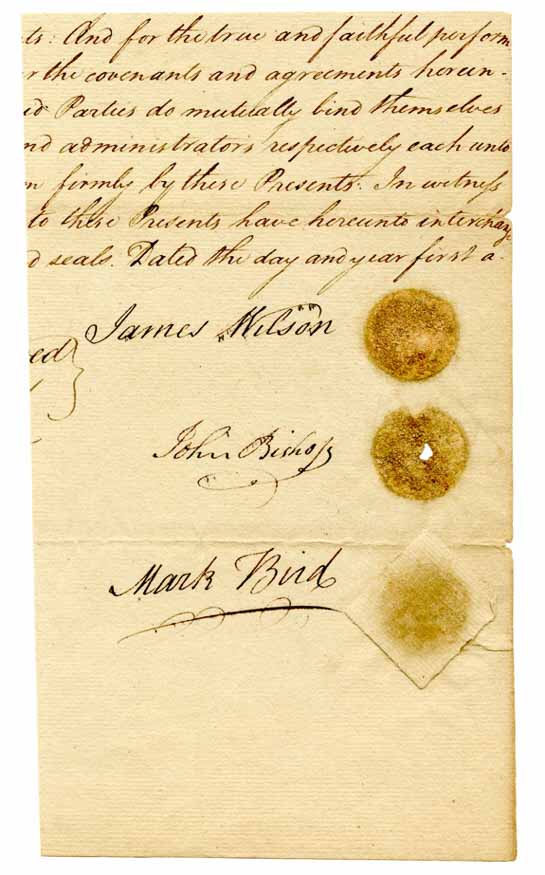 ts: And for the true and faithful perform
r the covenants and agreements herein-
id Parties do mutually bind themselves
nd administrators respectively each unto
n firmly by these Presents. In witness
to these Presents have hereunto interchang
d seals. Dated the day and year first a-
James Wilson
ed
John Bishop
Mark Bird